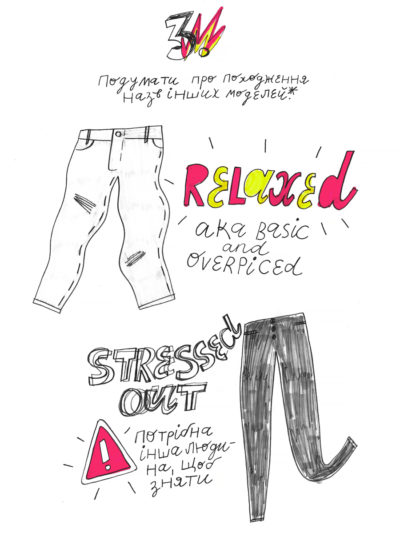 ЗМ!
Подумати про походження
назв інших моделей*
RELaxED
aka BASIC
and
OVERPICED
STRESSED
OUT
!
потрібна
інша люди-
на, щоб
зняти